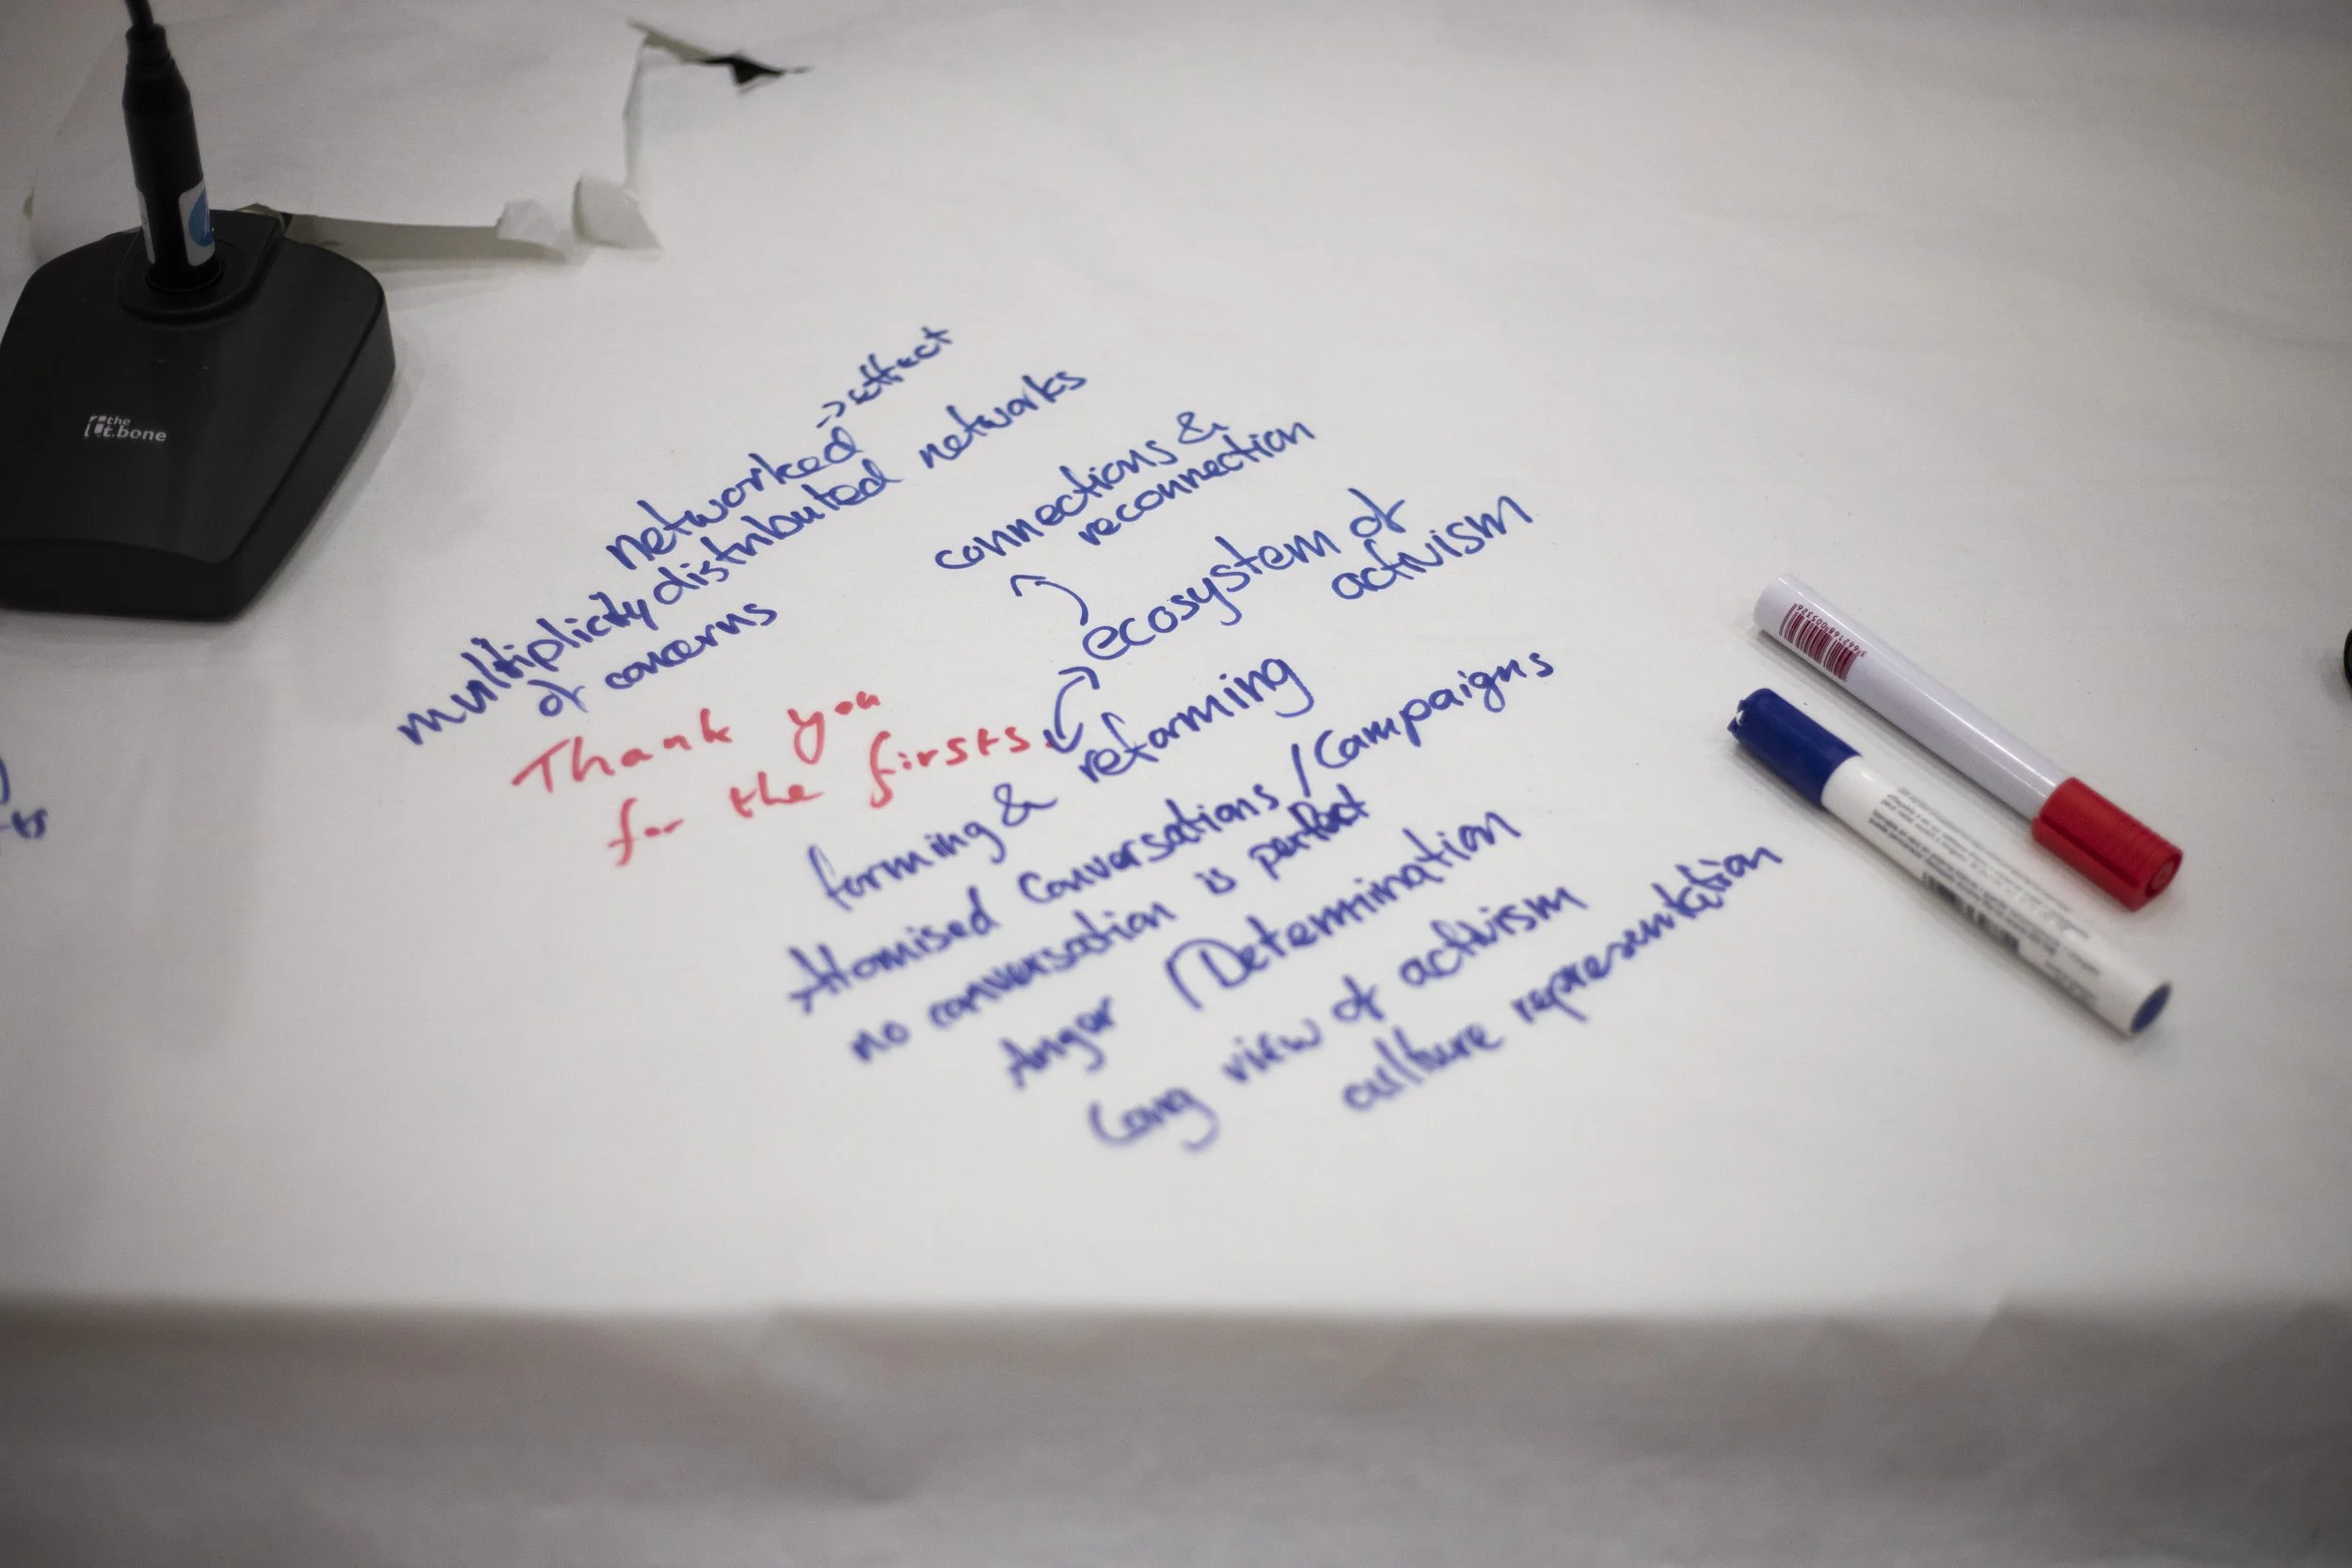 the
t.bone
networked -> effect
distributed networks
multiplicity
of concerns
connections &
reconnection
ecosystem of
activism
Thank you
for the firsts.
forming & reforming
Atomised Conversations / Campaigns
no conversation is perfect
Anger / Determination
Long view of activism
culture representation